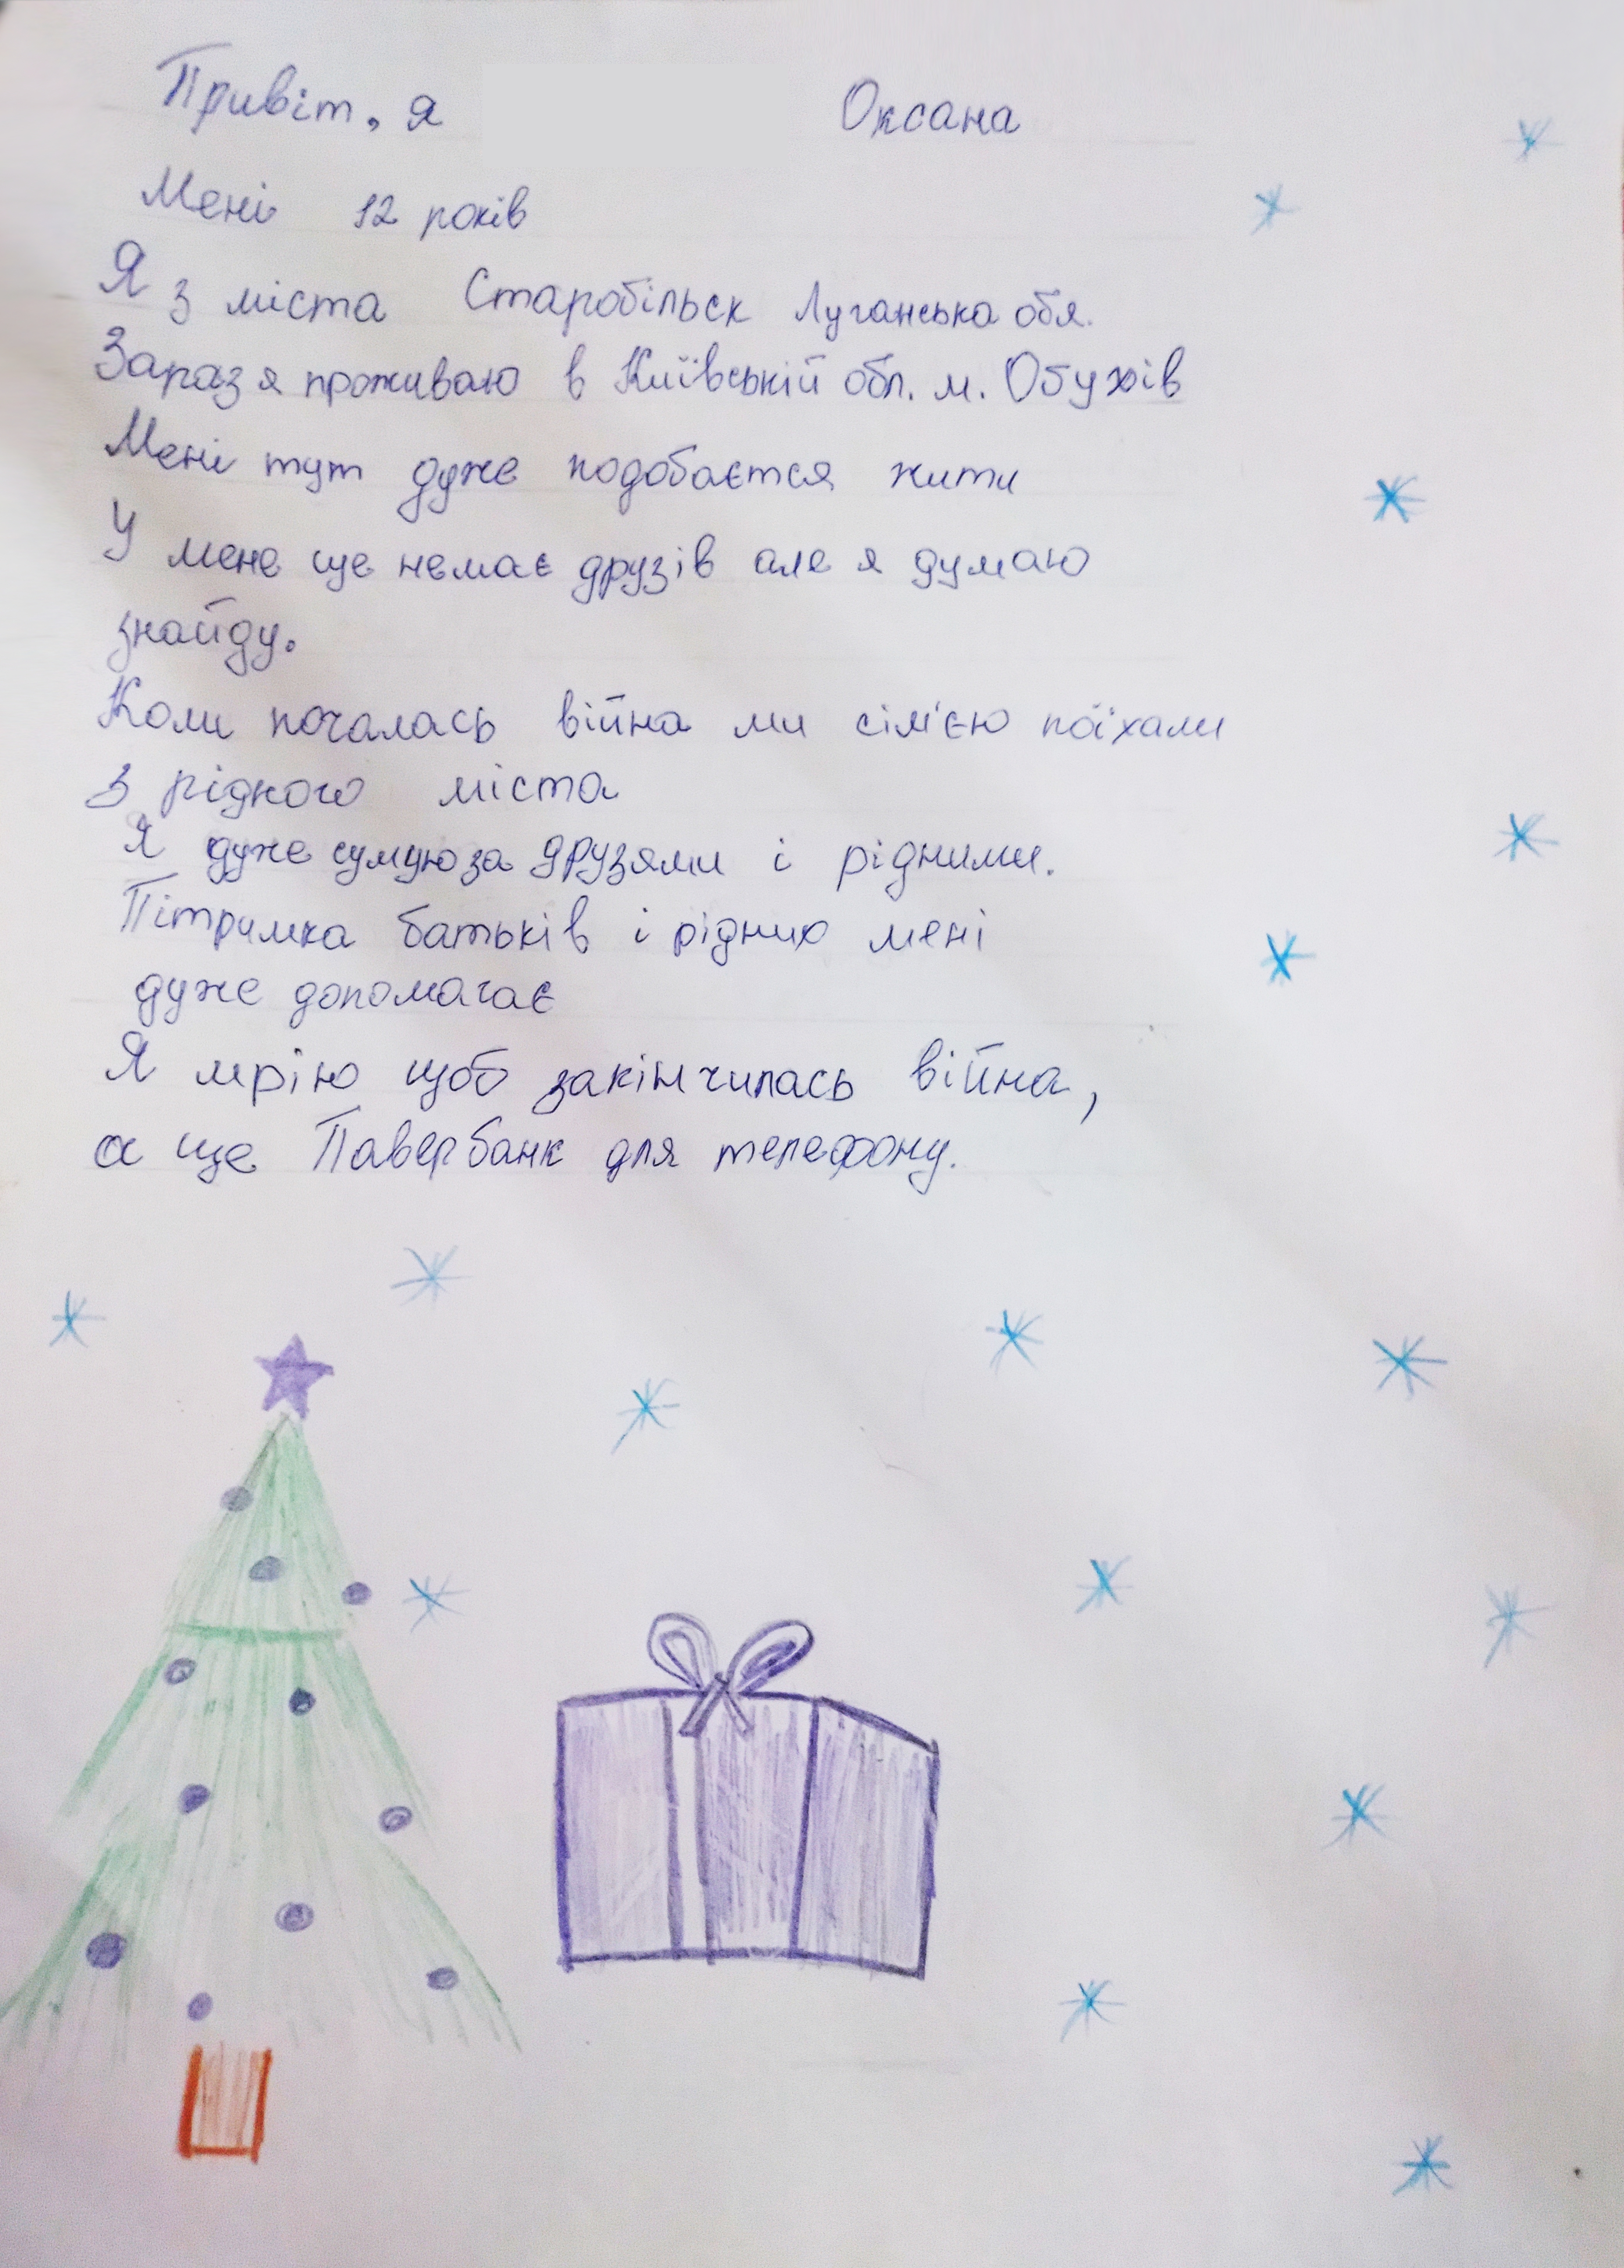 Привіт, я Оксана
Мені 12 років
Я з міста Старобільск Луганська обл.
Зараз я проживаю в Київській обл. м. Обухів
Мені тут дуже подобається жити
У мене ще немає друзів але я думаю
знайду.
Коли почалась війна ми сім'єю поїхали
з рідного міста
Я дуже сумую за друзями і рідними.
Пітримка батьків і рідних мені
дуже допомагає
Я мрію щоб закінчилась війна,
а ще Павербанк для телефону.